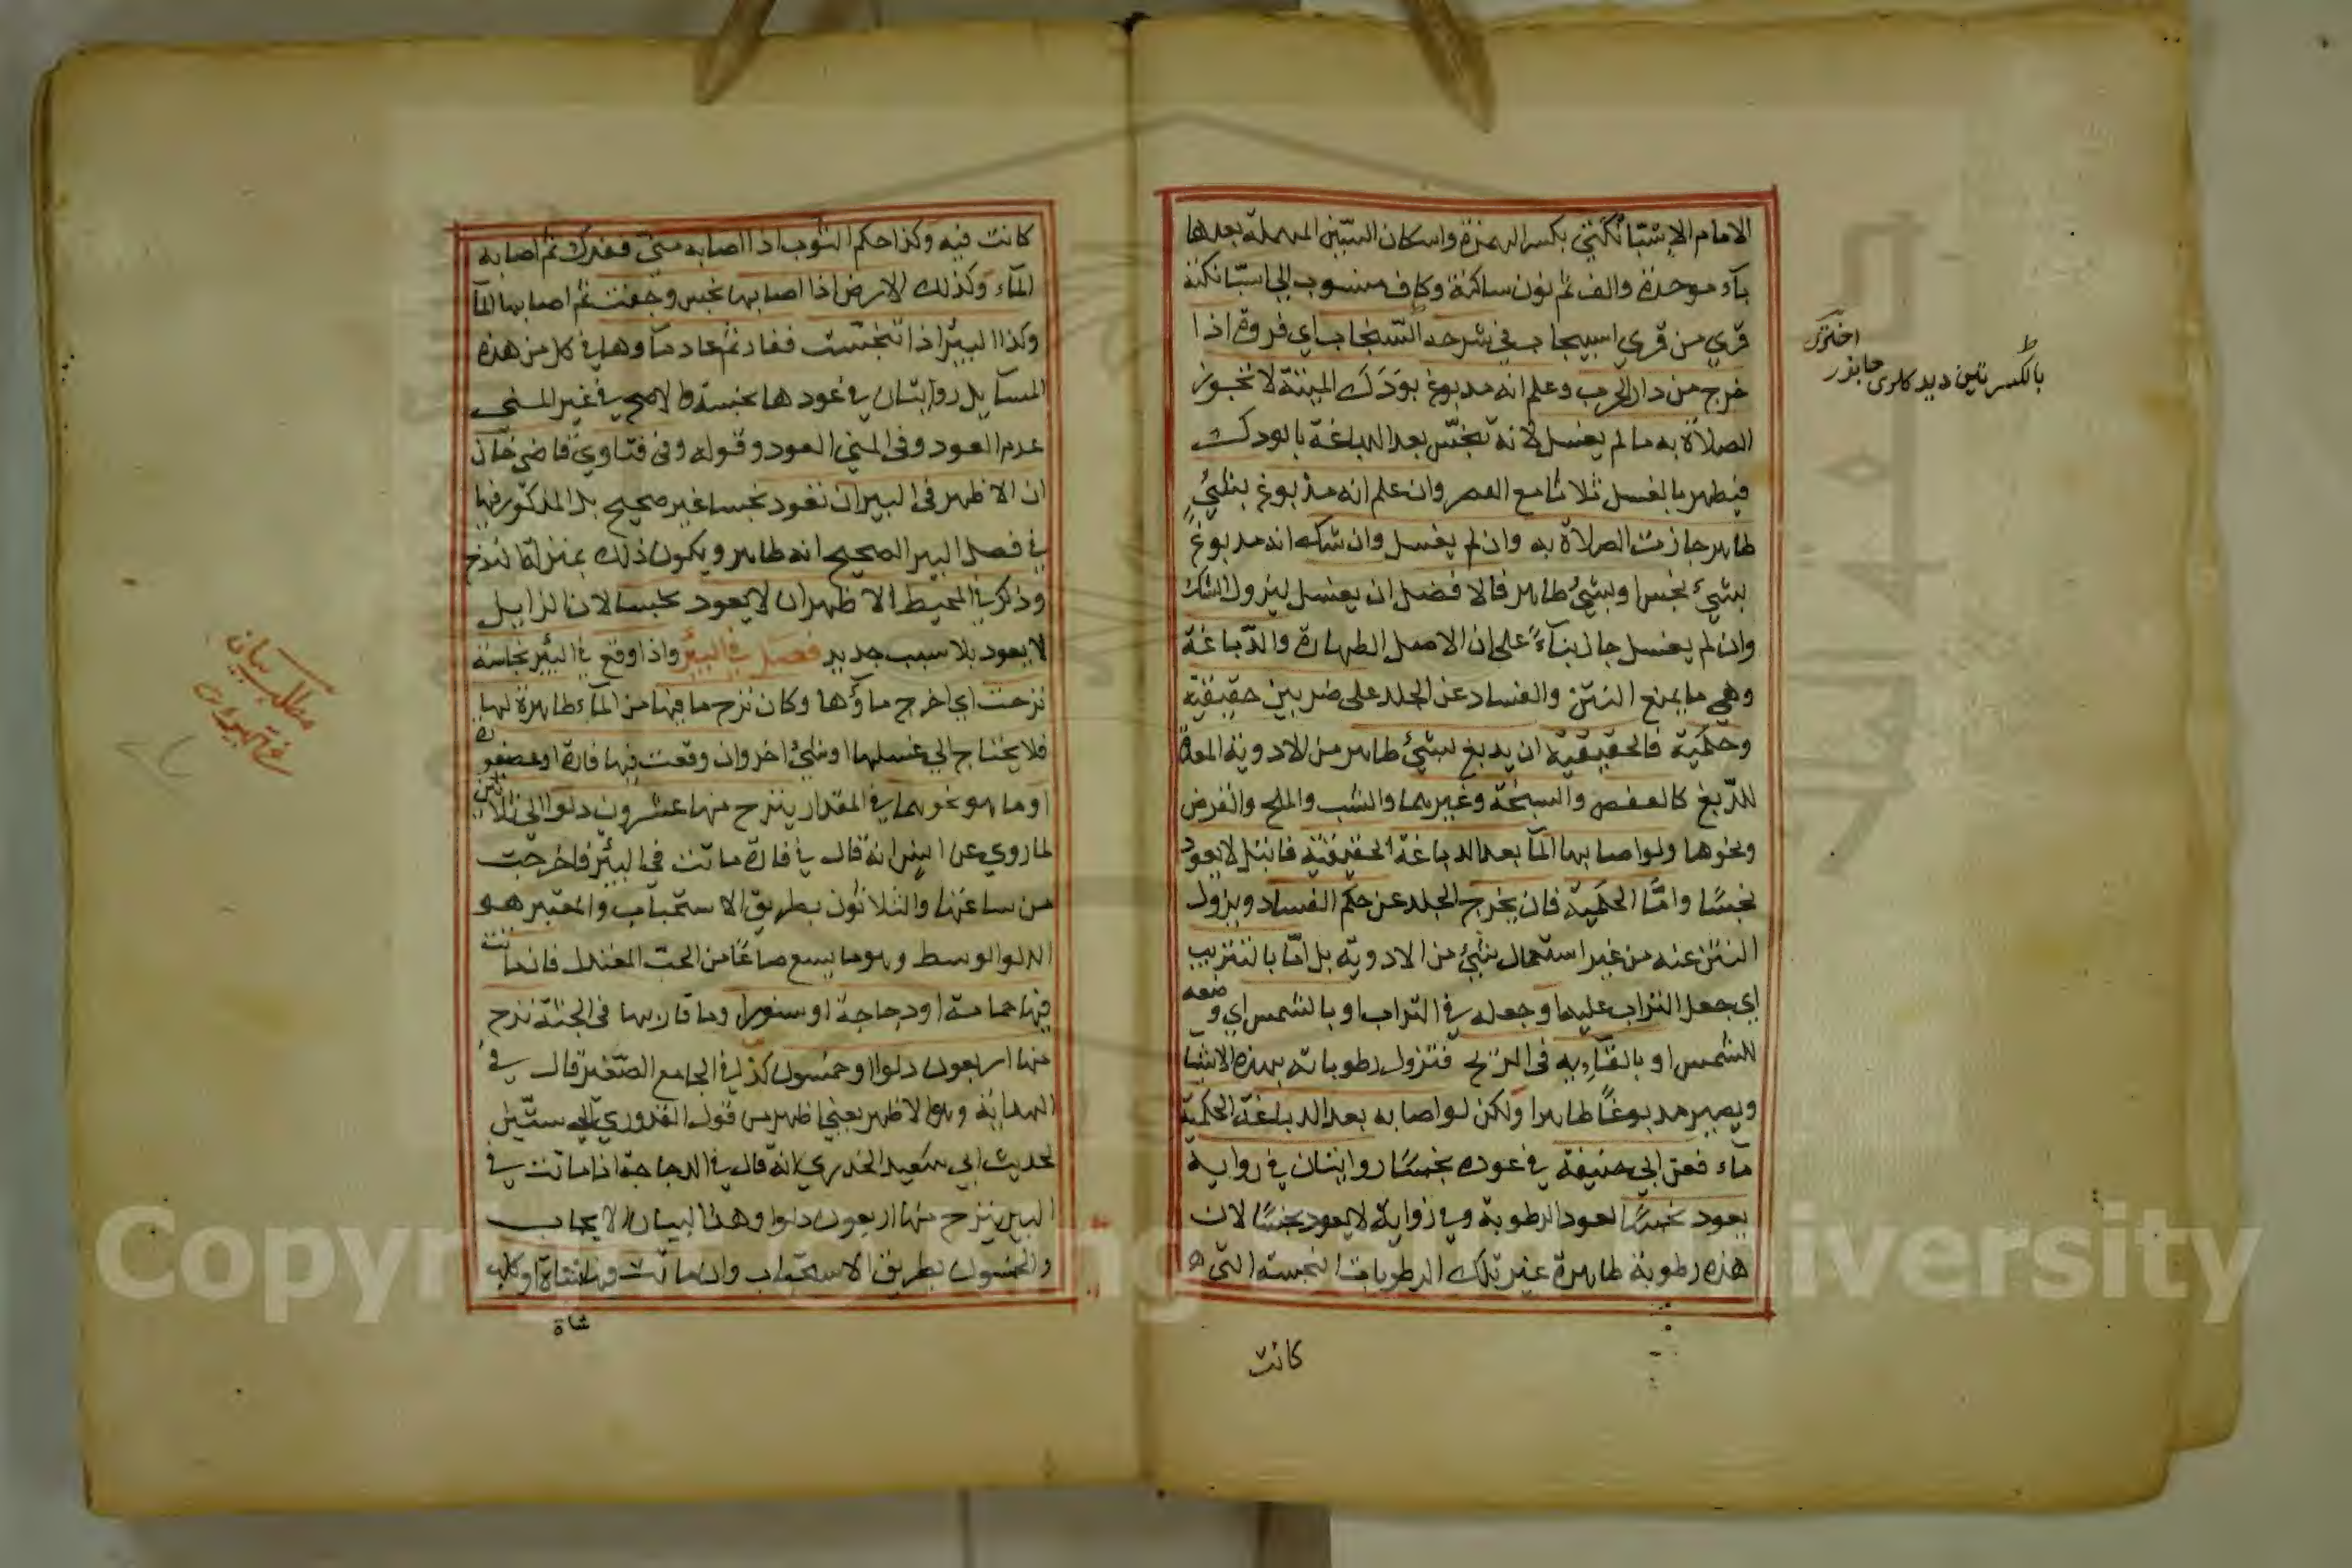 الامام الاسبانكتي بكسر الهمزة واسكان السين المهملة بعدها
باء موحدة والف ثم نون ساكنة وكاف منسوب الى اسبانكتة
قري من قري اسبيجاب في شرحه السنجاب اي فروة اذا
خرج من دار الحرب وعلم انه مدبوغ بودك الميتة لا تجوز
الصلاة به ما لم يغسل لانه تنجس بعد الدباغة بالودك
فيطهر بالغسل ثلاثا مع العصر وان علم انه مدبوغ بشئ
طاهر جازت الصلاة به وان لم يغسل وان شك انه مدبوغ
بشئ نجس او بشئ طاهر فالافضل ان يغسل ليزول الشك
وان لم يغسل جاز بناء على ان الاصل الطهارة والدباغة
وهي ما يمنع النتن والفساد عن الجلد على ضربين حقيقية
وحكمية فالحقيقية ان يدبغ بشئ طاهر من الادوية المعدة
للدبغ كالعفص والسبخة وغيرهما والشب والملح والقرض
ونحوها ولو اصابها الماء بعد الدباغة الحقيقية فابتل لا يعود
نجسا واما الحكمية فان يخرج الجلد عن حكم الفساد ويزول
النتن عنه من غير استعمال شئ من الادوية بل اما بالتتريب
اي جعل التراب عليه او جعله في التراب او بالتشميس اي وضعه
للشمس او بالقائه في الريح فتزول رطوباته بهذه الاشيا
ويصير مدبوغا طاهرا ولكن لو اصابه بعد الدباغة الحكمية
ماء فعن ابي حنيفة في عوده نجسا روايتان في رواية
يعود نجسا لعود الرطوبة وفي رواية لا يعود نجسا لان
هذه رطوبة طاهرة غير تلك الرطوبات النجسة التي
كانت
بالكسر تين ديدكلرى جانور
اختري
كانت فيه وكذا حكم الثوب اذا اصابه مني ففرك ثم اصابه
الماء وكذلك الارض اذا اصابها نجس وجفت ثم اصابها الماء
وكذا البئر اذا تنجست فغار ثم عاد ماوها في كل من هذه
المسايل روايتان في عودها نجسة والاصح في غير المني
عدم العود وفي المني العود وقوله وفي فتاوي قاضي خان
ان الاظهر في البير ان تعود نجسا غير صحيح بل المذكور فيها
في فصل البير الصحيح انه طاهر ويكون ذلك بمنزلة النزح
وذكر في المحيط الاظهر ان لا يعود نجسا لان الزايل
لا يعود بلا سبب جديد فصل في البئر واذا وقع في البئر نجاسة
نزحت اي اخرج ماؤها وكان نزح ما فيها من الماء طاهرة لها
فلا يحتاج الي غسلها او شئ اخر وان وقعت فيها فارة او عصفورة
او ما هو نحوهما في المقدار ينزح منها عشرون دلوا الي ثلاثين
لما روي عن انس انه قال في فارة ماتت في البئر فاخرجت
من ساعتها والثلاثون بطريق الاستحباب والمعتبر هو
الدلو الوسط وهو ما يسع صاعا من الحب المعتدل فان ماتت
فيها حمامة او دجاجة او سنور وما قاربها في الجثة نزح
منها اربعون دلوا او خمسون كذا في الجامع الصغير قال في
الهداية وهو الاظهر يعني اظهر من قول القدوري الي ستين
لحديث ابي سعيد الخدري انه قال في الدجاجة اذا ماتت في
البير ينزح منها اربعون دلوا وهذا لبيان الايجاب
والخمسون بطريق الاستحباب وان ماتت فيها شاة او كلب
شاة
مطلب بيان
Copyright © King University